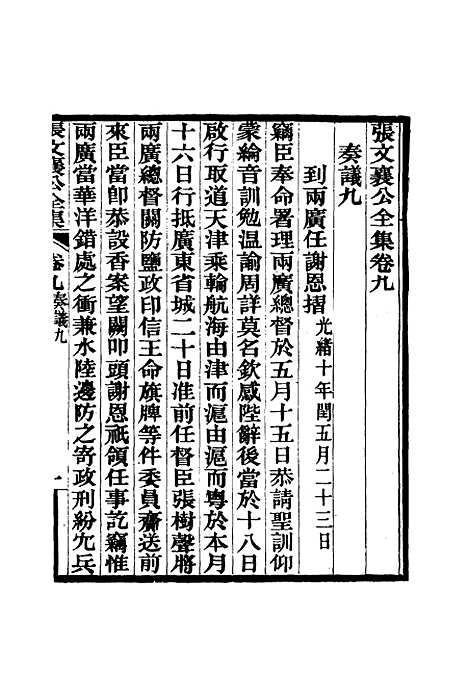 張文襄公全集卷九
奏議九
到兩廣任謝恩摺 光緒十年閏五月二十三日
竊臣奉命署理兩廣總督於五月十五日恭請聖訓仰
蒙綸音訓勉温諭周詳莫名欽感陛辭後當於十八日
啟行取道天津乘輪航海由津而滬由滬而粵於本月
十六日行抵廣東省城二十日准前任督臣張樹聲將
兩廣總督關防鹽政印信王命旗牌等件委員齎送前
來臣當卽恭設香案望闕叩頭謝恩祇領任事訖竊惟
兩廣當華洋錯處之衝兼水陸邊防之寄政刑紛宂兵
張文襄公全集 卷九 奏議九 一